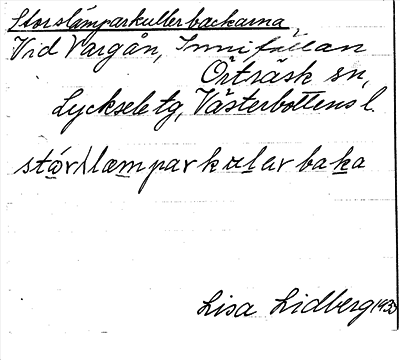 Storslamparkullerbackarna
Vid Vargån, Innifällan
Örträsk sn,
Lycksele tg, Västerbottens l.
stórslæmparkulɘrbaka
Lisa Lidberg 1930